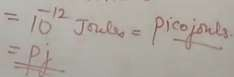 = 10⁻¹² Joules = picojouls.
= Pj